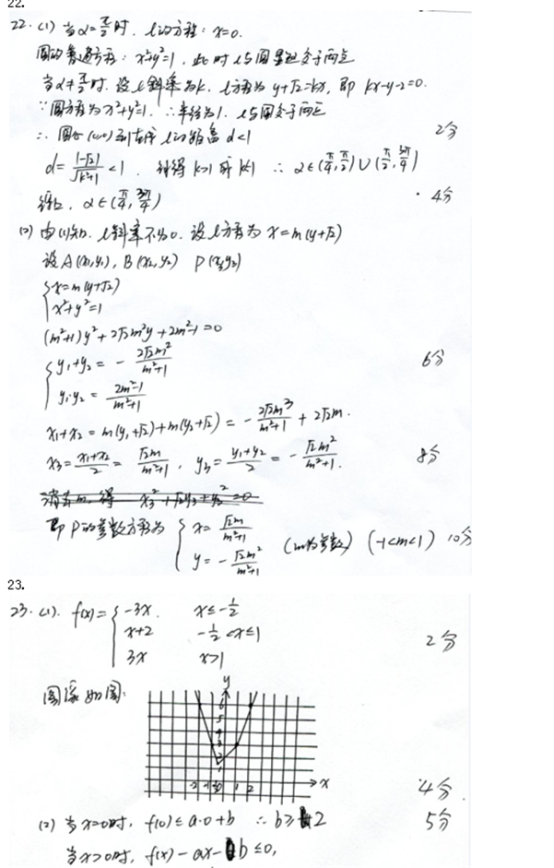 22.
22. (1) 当α=π/2时, l的方程: x=0.
圆的普通方程: x²+y²=1, 此时l与圆显然交于两点
当α≠π/2时, 设l斜率为k. l方程为y+√2=kx, 即 kx-y-√2=0.
∵圆方程为x²+y²=1. ∴半径为1. l与圆交于两点
∴ 圆心(0,0)到直线l的距离d<1 2分
d=|-√2|/√(k²+1)<1. 解得k>1或k<-1 ∴ α∈(π/4,π/2)∪(π/2,3π/4)
综上, α∈(π/4,3π/4) 4分
(2) 由(1)知, l斜率不为0. 设l方程为x=m(y+√2)
设A(x₁,y₁), B(x₂,y₂) P(x₃,y₃)
{x=m(y+√2)
x²+y²=1
(m²+1)y²+2√2m²y+2m²-1=0
{y₁+y₂=-2√2m²/(m²+1) 6分
y₁·y₂=(2m²-1)/(m²+1)
x₁+x₂=m(y₁+√2)+m(y₂+√2)=-2√2m³/(m²+1)+2√2m.
x₃=(x₁+x₂)/2=√2m/(m²+1), y₃=(y₁+y₂)/2=-√2m²/(m²+1). 8分
即P的参数方程为{x=√2m/(m²+1)
y=-√2m²/(m²+1) (m为参数) (-1<m<1) 10分
23.
23. (1). f(x)={-3x. x≤-1/2
x+2 -1/2<x≤1 2分
3x x>1
图像如图:
y
x
4分
(2) 当x=0时, f(0)≤a·0+b ∴b≥2 5分
当x>0时, f(x)-ax-b≤0,